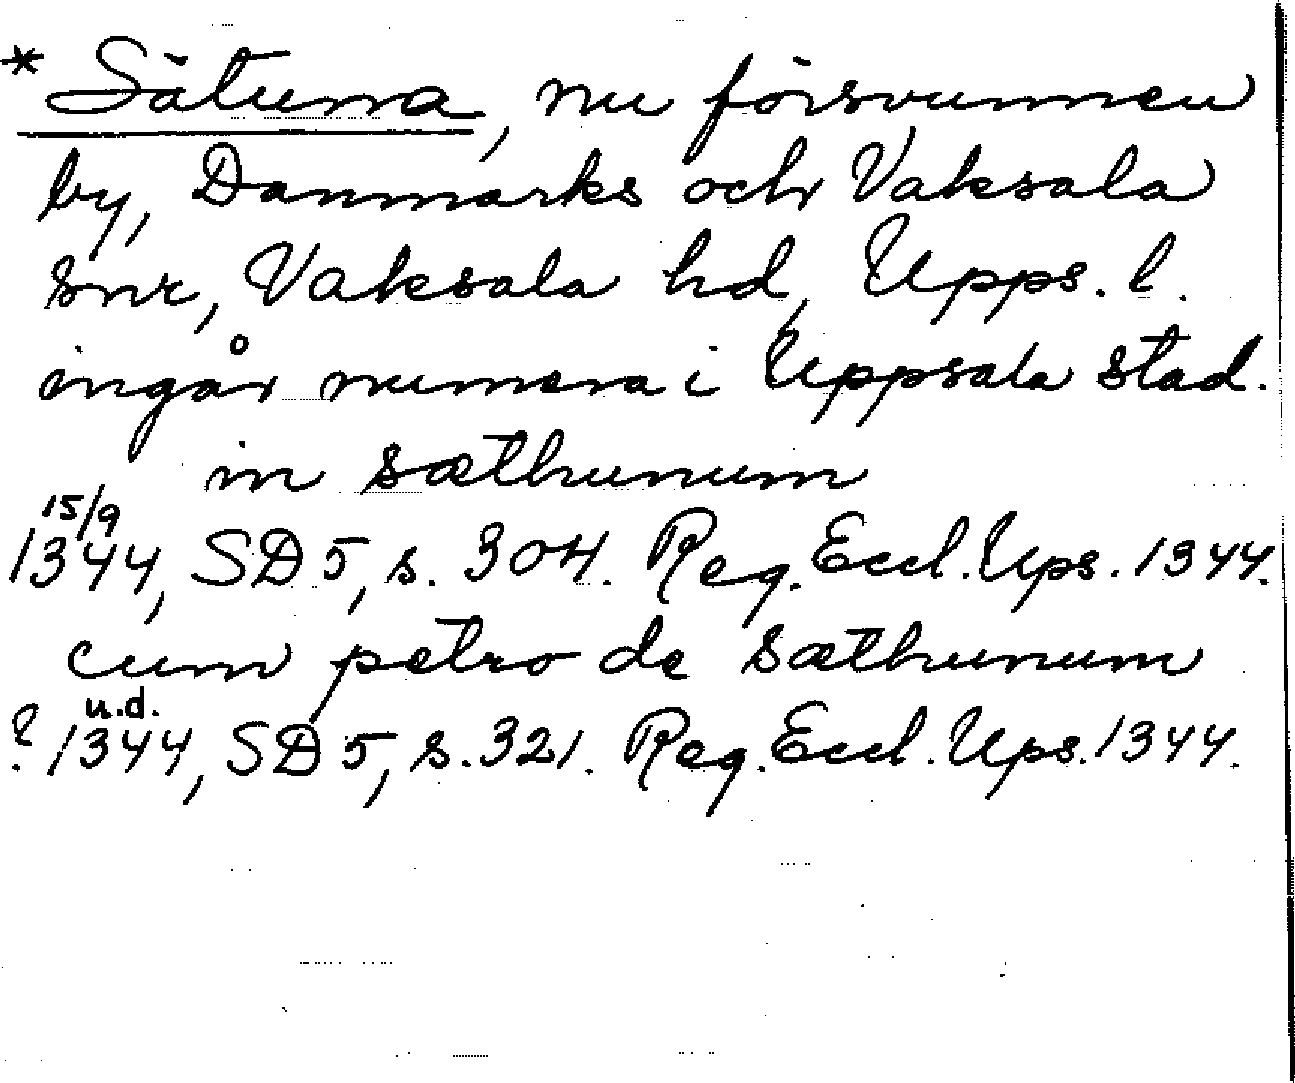 * Sätuna, nu försvunnen
by, Danmarks och Vaksala
snr, Vaksala hd, Upps. l.
ingår numera i Uppsala stad.
in sæthunum
15/9
1344, SD 5, s. 304. Reg. Eccl. Ups. 1344.
cum petro de sæthunum
u.d.
? 1344, SD 5, s. 321. Reg. Eccl. Ups. 1344.